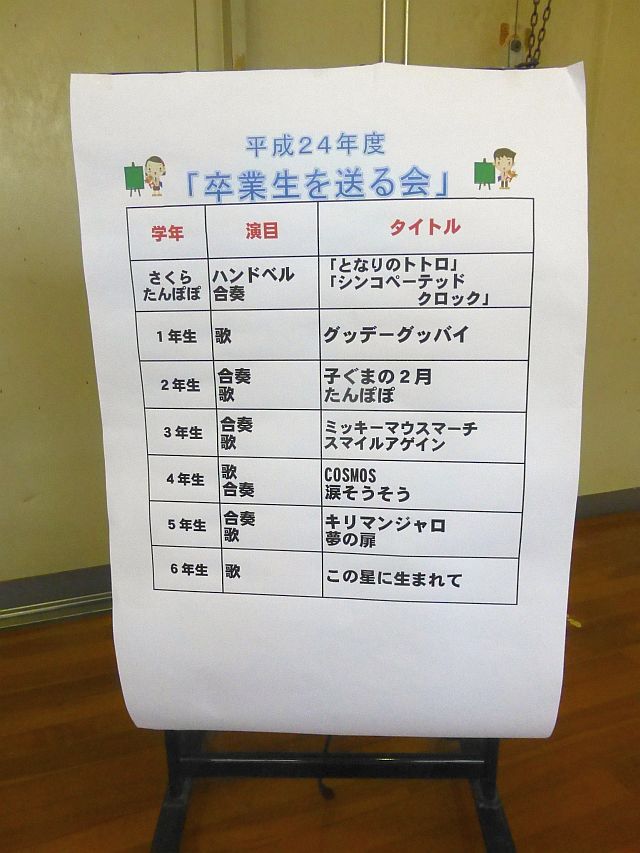 平成24年度
「卒業生を送る会」
学年 演目 タイトル
さくら ハンドベル 「となりのトトロ」
たんぽぽ 合奏 「シンコペーテッド
クロック」
1年生 歌 グッデーグッバイ
2年生 合奏 子ぐまの2月
歌 たんぽぽ
3年生 合奏 ミッキーマウスマーチ
歌 スマイルアゲイン
4年生 歌 COSMOS
合奏 涙そうそう
5年生 合奏 キリマンジャロ
歌 夢の扉
6年生 歌 この星に生まれて